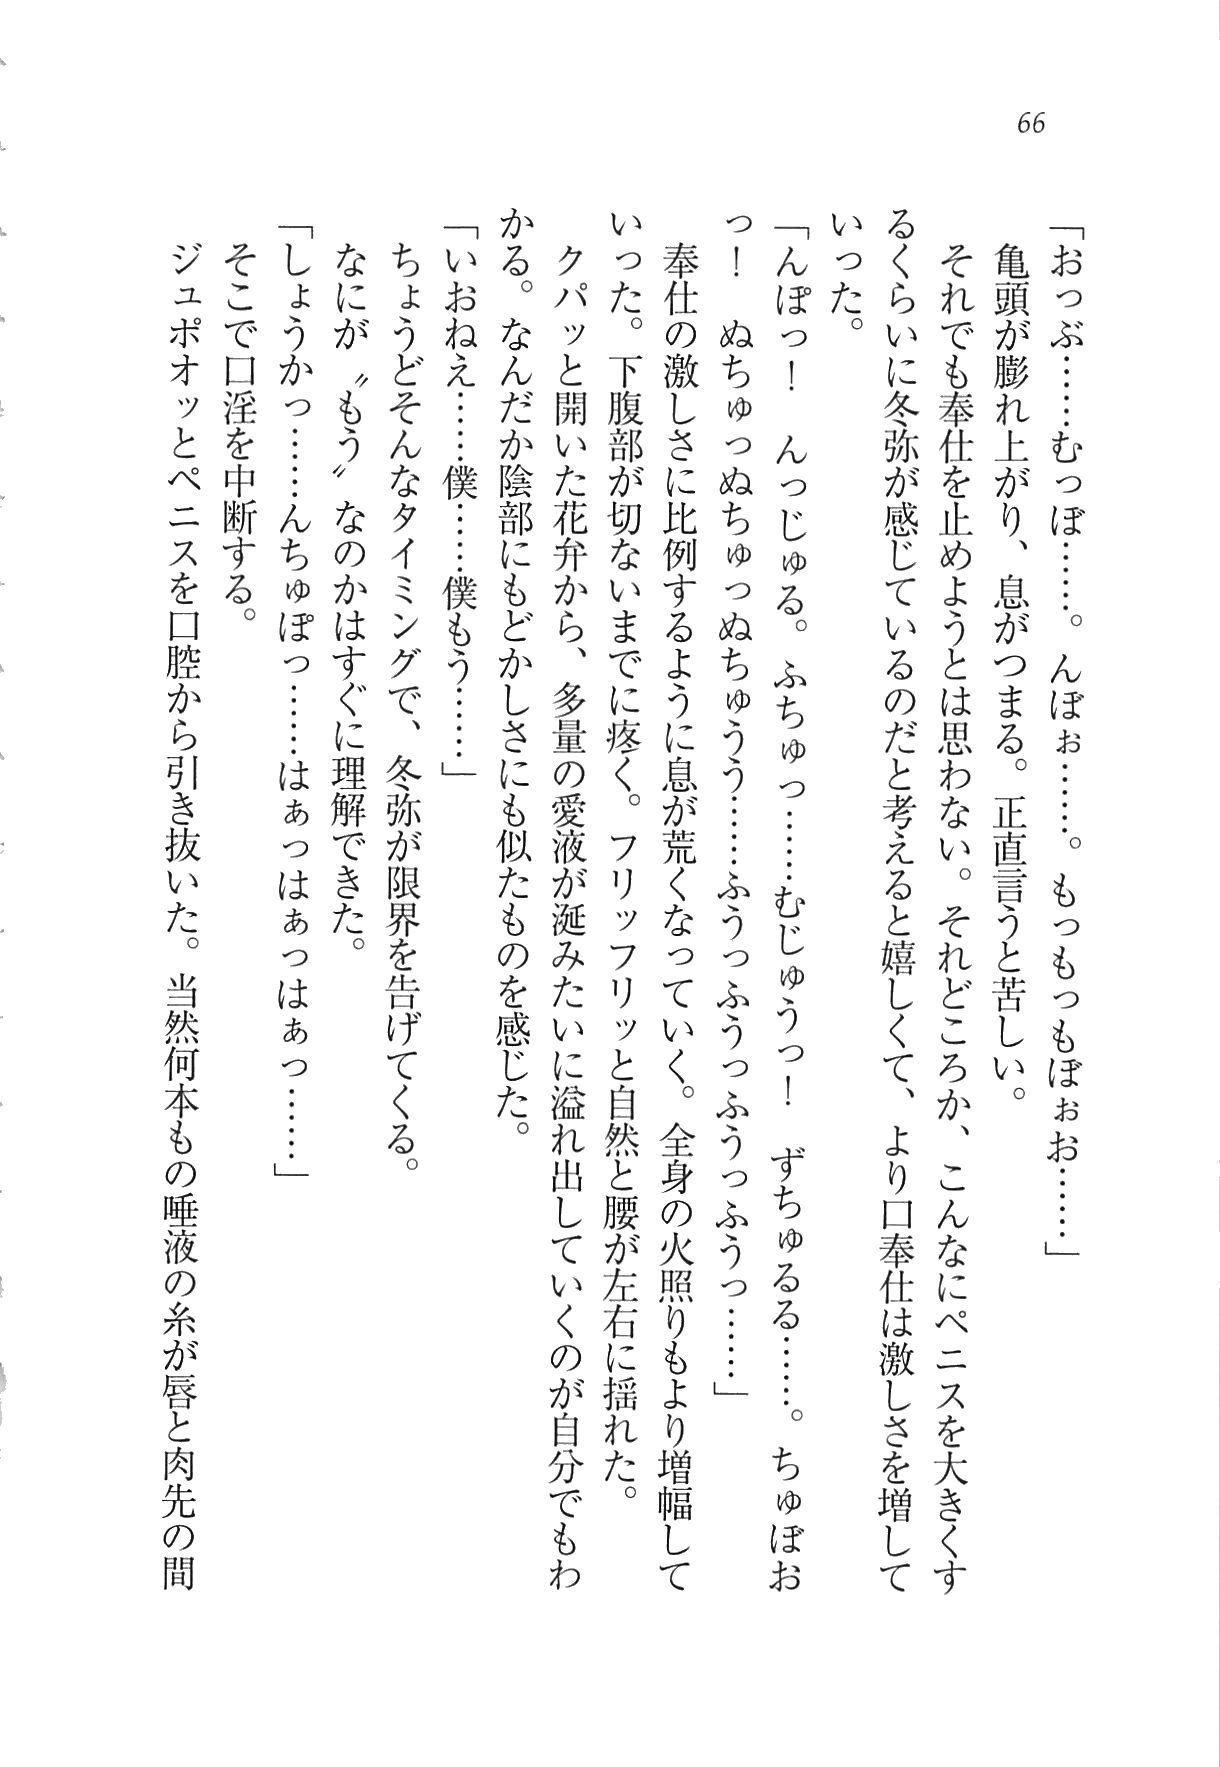 66
「おっぶ……むっぼ……。んぼぉ……。もっもっもぼぉお……」
亀頭が膨れ上がり、息がつまる。正直言うと苦しい。
それでも奉仕を止めようとは思わない。それどころか、こんなにペニスを大きくす
るくらいに冬弥が感じているのだと考えると嬉しくて、より口奉仕は激しさを増して
いった。
「んぽっ！　んっじゅる。ふちゅっ……むじゅうっ！　ずちゅるる……。ちゅぼお
っ！　ぬちゅっぬちゅっぬちゅうう……ふうっふうっふうっふうっ……」
奉仕の激しさに比例するように息が荒くなっていく。全身の火照りもより増幅して
いった。下腹部が切ないまでに疼く。フリッフリッと自然と腰が左右に揺れた。
クパッと開いた花弁から、多量の愛液が涎みたいに溢れ出していくのが自分でもわ
かる。なんだか陰部にもどかしさにも似たものを感じた。
「いおねえ……僕……僕もう……」
ちょうどそんなタイミングで、冬弥が限界を告げてくる。
なにが〝もう〟なのかはすぐに理解できた。
「しょうかっ……んちゅぽっ……はぁっはぁっはぁっ……」
そこで口淫を中断する。
ジュポオッとペニスを口腔から引き抜いた。当然何本もの唾液の糸が唇と肉先の間